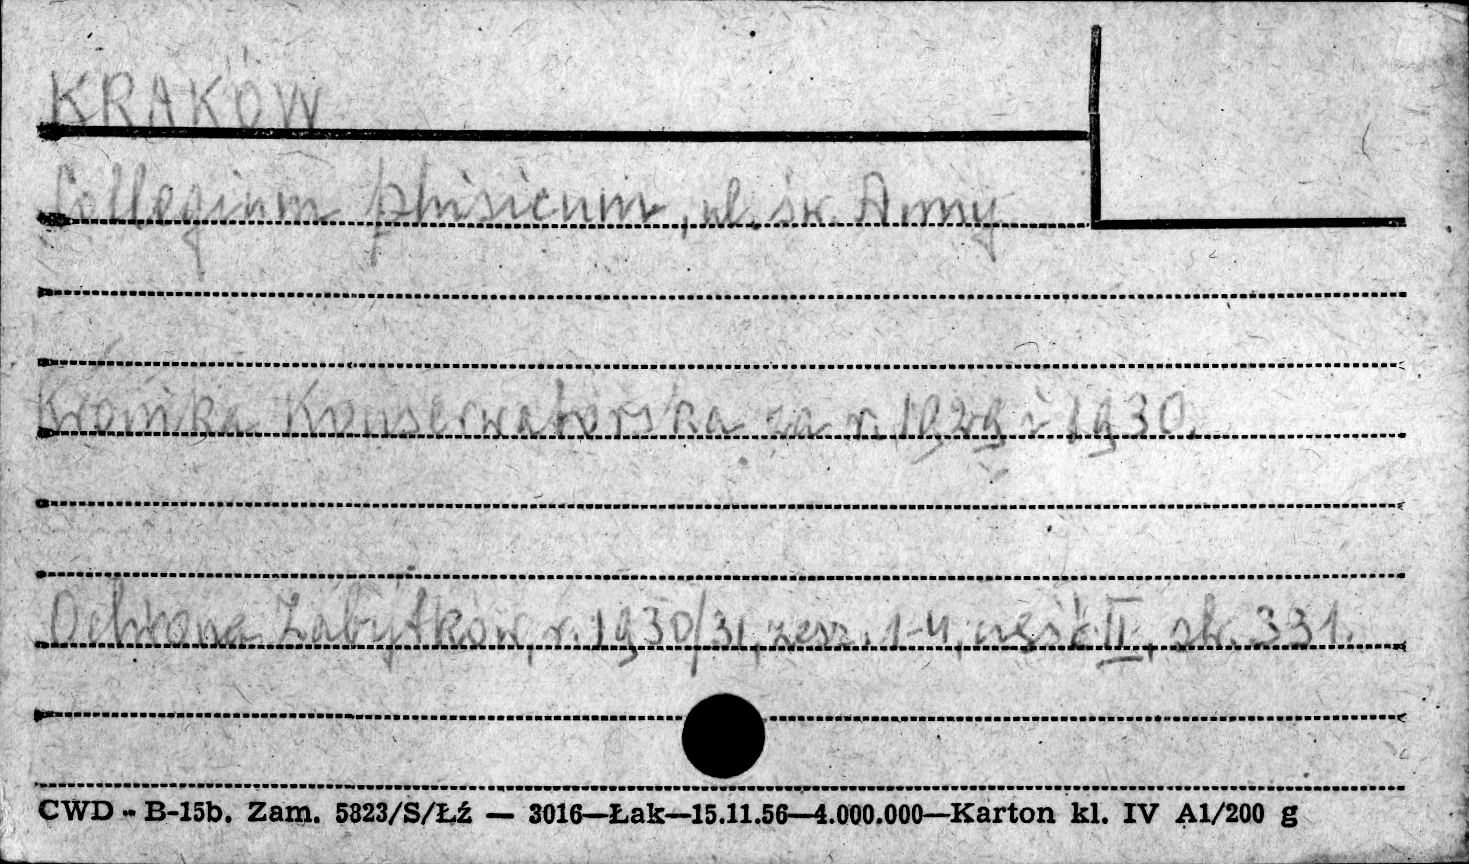 KRAKÓW
Collegium phisicum, ul. św. Anny
Kronika Konserwatorska za r. 1929 i 1930.
Ochrona Zabytków, r. 1930/31, zesz. 1-4, część II, str. 331.
CWD - B-15b. Zam. 5823/S/Łź — 3016—Łak—15.11.56—4.000.000—Karton kl. IV A1/200 g